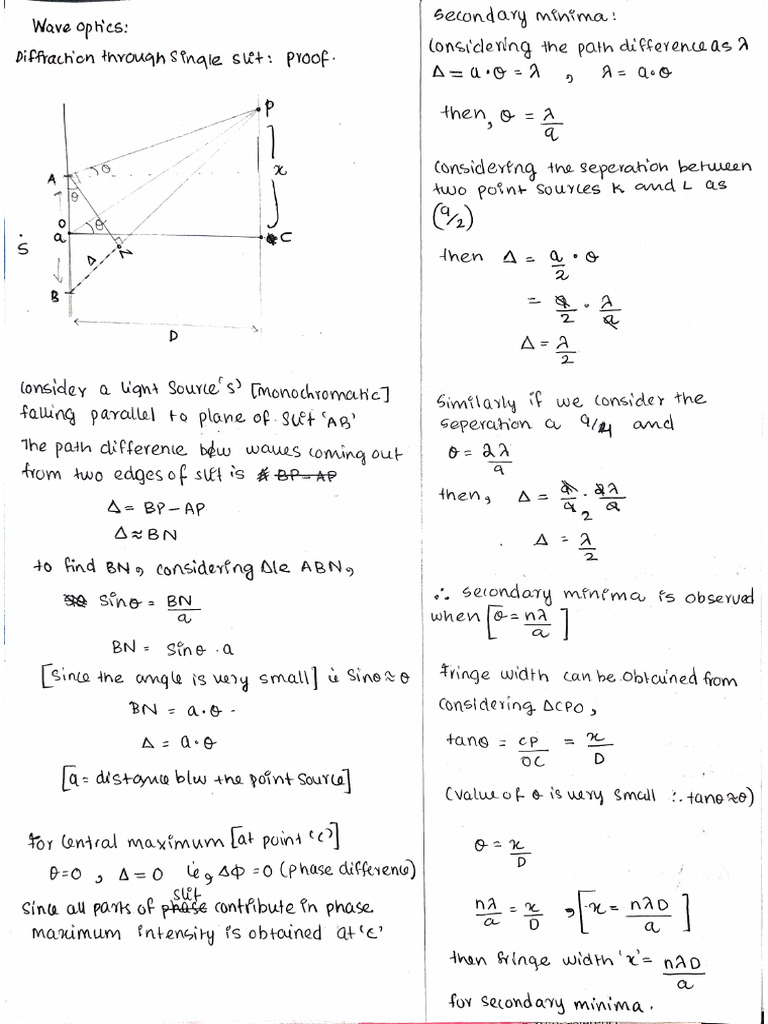 Wave optics:
Diffraction through single slit: proof.
P
A
θ
x
θ
O
θ
a
C
S
N
Δ
B
D
Consider a light source 'S' [monochromatic]
falling parallel to plane of slit 'AB'
The path difference b/w waves coming out
from two edges of slit is BP-AP
Δ = BP - AP
Δ ≈ BN
to find BN, considering Δle ABN,
sinθ = BN/a
BN = sinθ · a
[since the angle is very small] ie sinθ ≈ θ
BN = a·θ
Δ = a·θ
[a = distance b/w the point source]
for central maximum [at point 'c']
θ=0, Δ=0 ie, ΔΦ=0 (phase difference)
slit
since all parts of phase contribute in phase
maximum intensity is obtained at 'c'
Secondary minima:
Considering the path difference as λ
Δ = a·θ = λ , λ = a·θ
then, θ = λ/a
Considering the seperation between
two point sources K and L as
(a/2)
then Δ = a/2 · θ
= a/2 · λ/a
Δ = λ/2
Similarly if we consider the
seperation a a/4 and
θ = 2λ/a
then, Δ = a/4 2 · 2λ/a
. Δ = λ/2
∴ secondary minima is observed
when [θ = nλ/a]
Fringe width can be obtained from
considering ΔCPO,
tanθ = CP/OC = x/D
(value of θ is very small ∴ tanθ≈θ)
θ = x/D
nλ/a = x/D , [x = nλD/a]
then fringe width 'x' = nλD/a
for secondary minima.